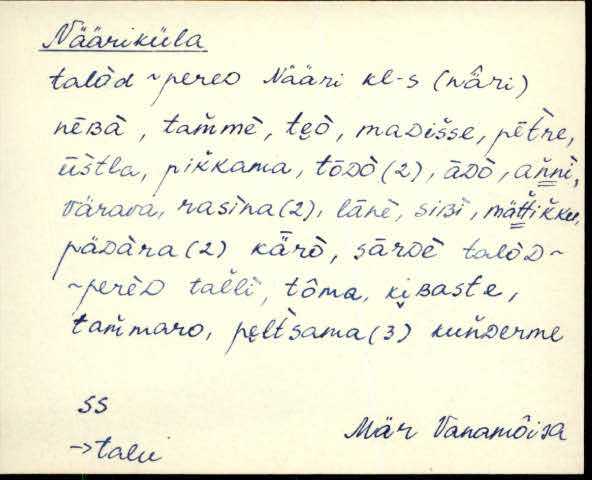 Nääriküla
talòd ~ pereᴅ Nääri kl-s (nä̂ri)
nēʙà, tam̆mè, tęò, maᴅišse, pētre,
ūštla, pik̆kama, tōᴅò (2), āᴅò, an̆nì,
värava, rasìna (2), lānè, siʙì, mät̆tik̆ku,
päᴅàra (2) kǟrò, sārᴅè talòᴅ~
~perèᴅ tal̆lì, tôma, ki̮ʙaste,
tam̆maro, pęltsama (3) kun̆derme
ss
→talu
Mär Vanamõisa